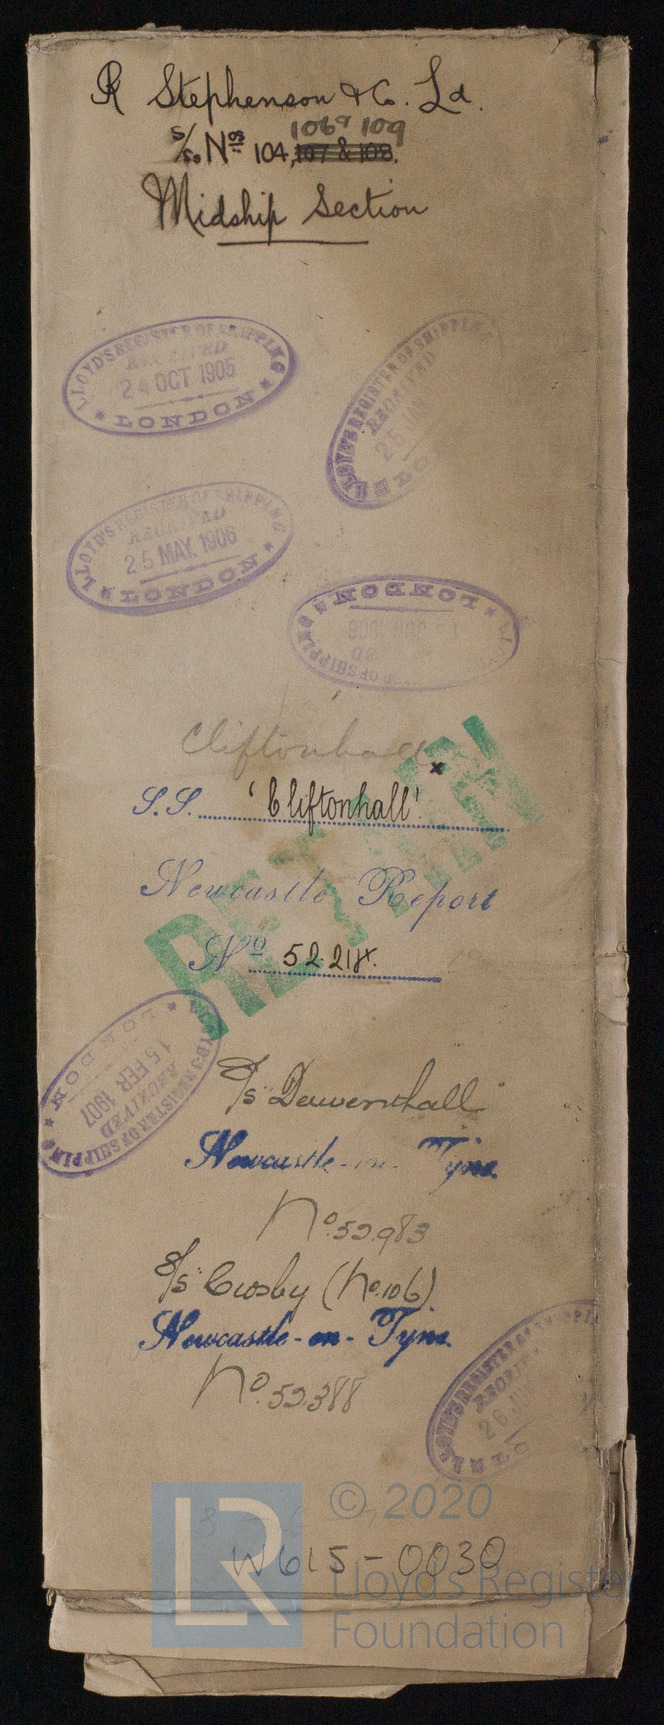 R Stephenson & Co. Ld.
106 & 109
S/So Nos 104, 107 & 108.
Midship Section
LLOYD'S REGISTER OF SHIPPING
RECEIVED
24 OCT 1905
LONDON
LLOYD'S REGISTER OF SHIPPING
RECEIVED
25
LLOYD'S REGISTER OF SHIPPING
RECEIVED
25 MAY. 1906
LONDON
LONDON
OF SHIPPING
Cliftonhall
x
S.S. 'Cliftonhall'
RETAIN
Newcastle Report
No 52214.
LLOYD'S REGISTER OF SHIPPING
RECEIVED
15 FEB 1907
LONDON
S/S
Newcastle-on-Tyne.
No. 52983
S/S Crosby (No. 106)
Newcastle-on-Tyne.
No. 52388
LLOYD'S REGISTER OF SHIPPING
26 JUN
LR
© 2020
W615-0030
Lloyd's Register
Foundation